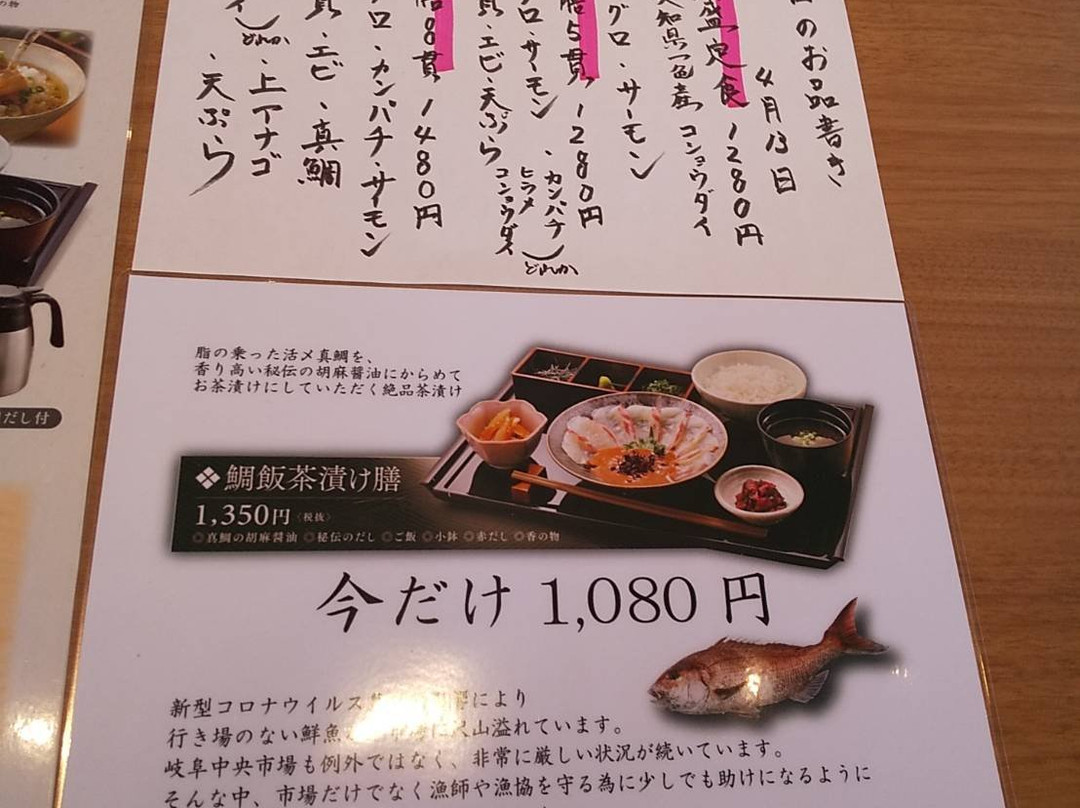 のお品書き
4月13日
盛定食 1280円
知県一色産 コショウダイ
グロ・サーモン
5貫 1280円
ロ・サーモン・カンパチ
ヒラメ
どれか
貝・エビ・天ぷら コショウダイ
8貫 1480円
グロ・カンパチ・サーモン
貝・エビ・真鯛
どれか
・上アナゴ
・天ぷら
だし付
脂の乗った活〆真鯛を、
香り高い秘伝の胡麻醤油にからめて
お茶漬けにしていただく絶品茶漬け
❖鯛飯茶漬け膳
1,350円〈税抜〉
◎真鯛の胡麻醤油 ◎秘伝のだし ◎ご飯 ◎小鉢 ◎赤だし ◎香の物
今だけ 1,080 円
新型コロナウイルス により
行き場のない鮮魚 沢山溢れています。
岐阜中央市場も例外ではなく、非常に厳しい状況が続いています。
そんな中、市場だけでなく漁師や漁協を守る為に少しでも助けになるように